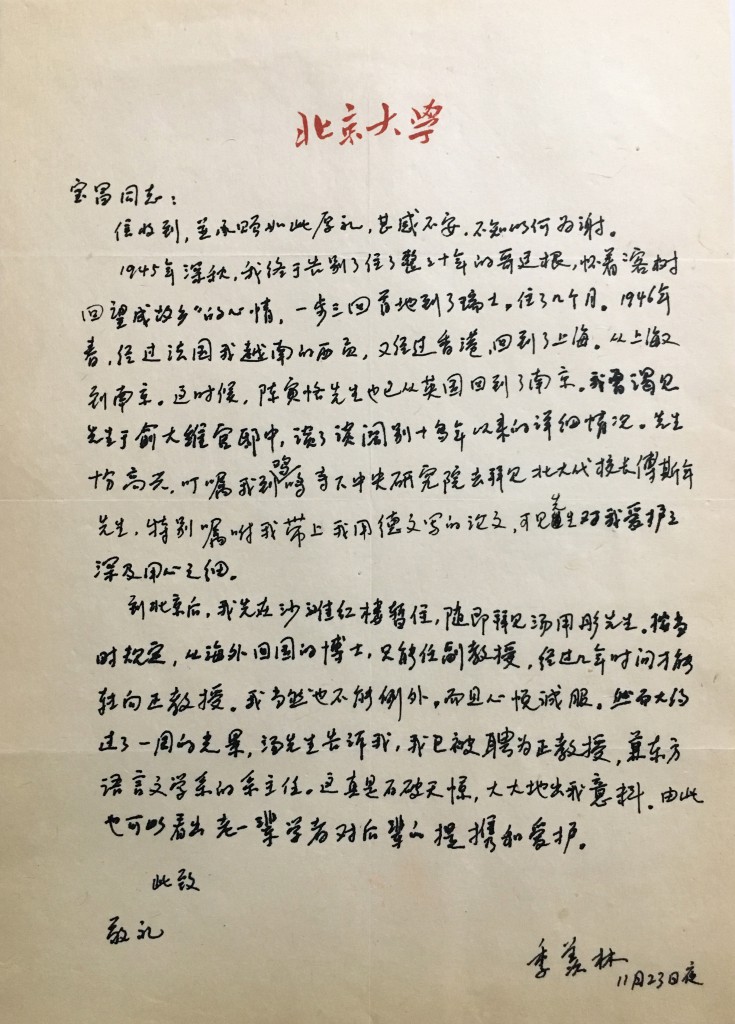 北京大学
宝昌同志：
信收到，并承赐如此厚礼，甚感不安，不知以何为谢。
1945年深秋，我终于告别了住了整整十年的哥廷根，怀着“客树
回望成故乡”的心情，一步三回首地到了瑞士。住了几个月。1946年
春，经过法国我越南的西贡，又经过香港，回到了上海。从上海又
到南京。这时候，陈寅恪先生也已从英国回到了南京。我曾谒见
先生于俞大维官邸中，谈了谈阔别十多年以来的详细情况。先生
十分高兴，叮嘱我到鸡鸣寺下中央研究院去拜见北大代校长傅斯年
先生，特别嘱咐我带上我用德文写的论文，可见先生对我爱护之
深及用心之细。
到北京后，我先在沙滩红楼暂住，随即拜见汤用彤先生。按当
时规定，从海外回国的博士，只能任副教授，经过几年时间才能
转向正教授。我当然也不能例外，而且心悦诚服。然而大约
过了一周的光景，汤先生告诉我，我已被聘为正教授，兼东方
语言文学系的系主任。这真是石破天惊，大大地出我意料。由此
也可以看出老一辈学者对后辈的提携和爱护。
此致
敬礼
季羡林
11月23日夜